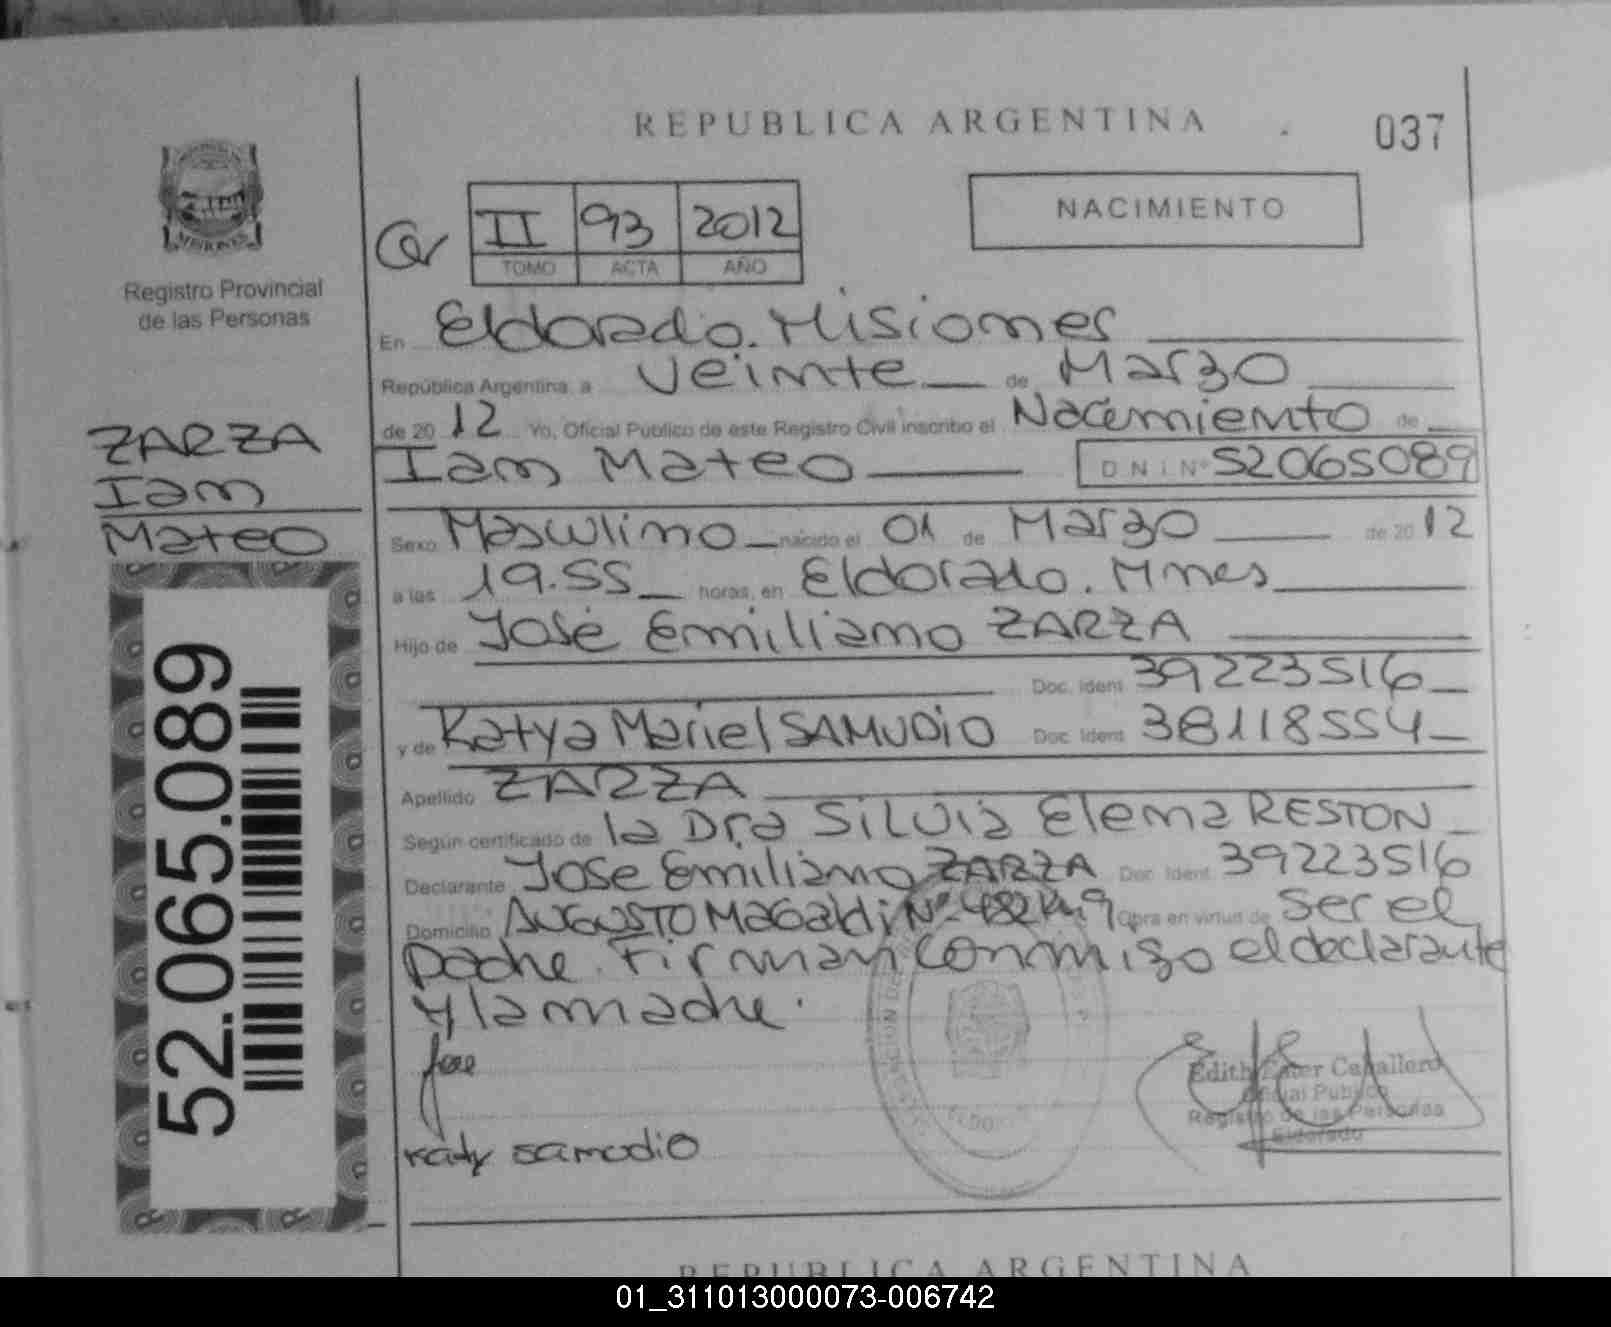 REPUBLICA ARGENTINA
037
II 93 2012
TOMO ACTA AÑO
NACIMIENTO
MISIONES
Registro Provincial
de las Personas
ZARZA
Ian
Mateo
52.065.089
En Eldorado. Misiones
República Argentina a veinte de Marzo
de 2012 Yo, Oficial Público de este Registro Civil inscribo el Nacimiento de
Ian Mateo D N I Nº 52065089
Sexo Masculino nacido el 01 de Marzo de 2012
a las 19.55 horas, en Eldorado. Mnes
Hijo de José Emiliano ZARZA
Doc. Ident 39223516
y de Katya Mariel SAMUDIO Doc. Ident 38118554
Apellido ZARZA
Según certificado de la Dra Silvia Elena RESTON
Declarante José Emiliano ZARZA Doc. Ident. 39223516
Domicilio Augusto Magaldi Nº 482 Km 9 Obra en virtud de ser el
padre. Firman conmigo el declarante
y la madre.
Jose
Katy samudio
Edith Ester Caballero
Oficial Publico
Registro de las Personas
Eldorado
REPUBLICA ARGENTINA
01_311013000073-006742